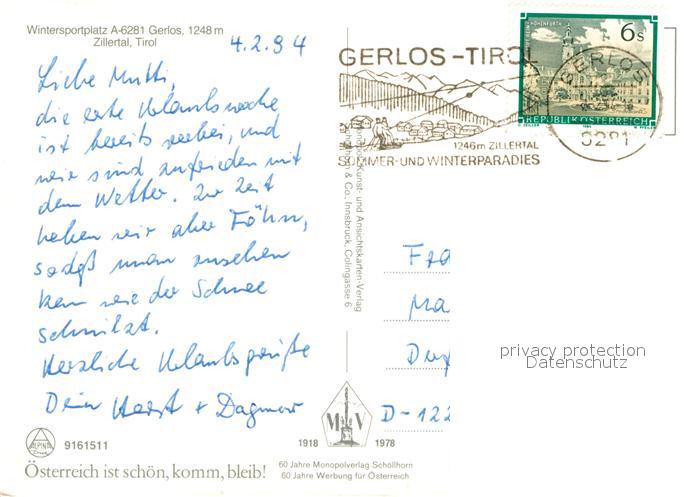 Wintersportplatz A-6281 Gerlos, 1248 m
Zillertal, Tirol
4.2.94
Liebe Mutti,
die erste Urlaubswoche
ist bereits vorbei, und
wir sind zufrieden mit
dem Wetter. Zur Zeit
haben wir aber Föhn,
sodaß man zusehen
kann wie der Schnee
schmilzt.
Herzliche Urlaubsgrüße
Dein Horst + Dagmar
ALPINA
9161511
Österreich ist schön, komm, bleib!
GERLOS-TIROL
1246m ZILLERTAL
SOMMER-UND WINTERPARADIES
6 s
REPUBLIK ÖSTERREICH
GERLOS
6281
Kunst- und Ansichtskarten-Verlag
& Co., Innsbruck, Colingasse 6
Fra
Ma
D-122
privacy protection
Datenschutz
M V
1918 1978
60 Jahre Monopolverlag Schöllhorn
60 Jahre Werbung für Österreich